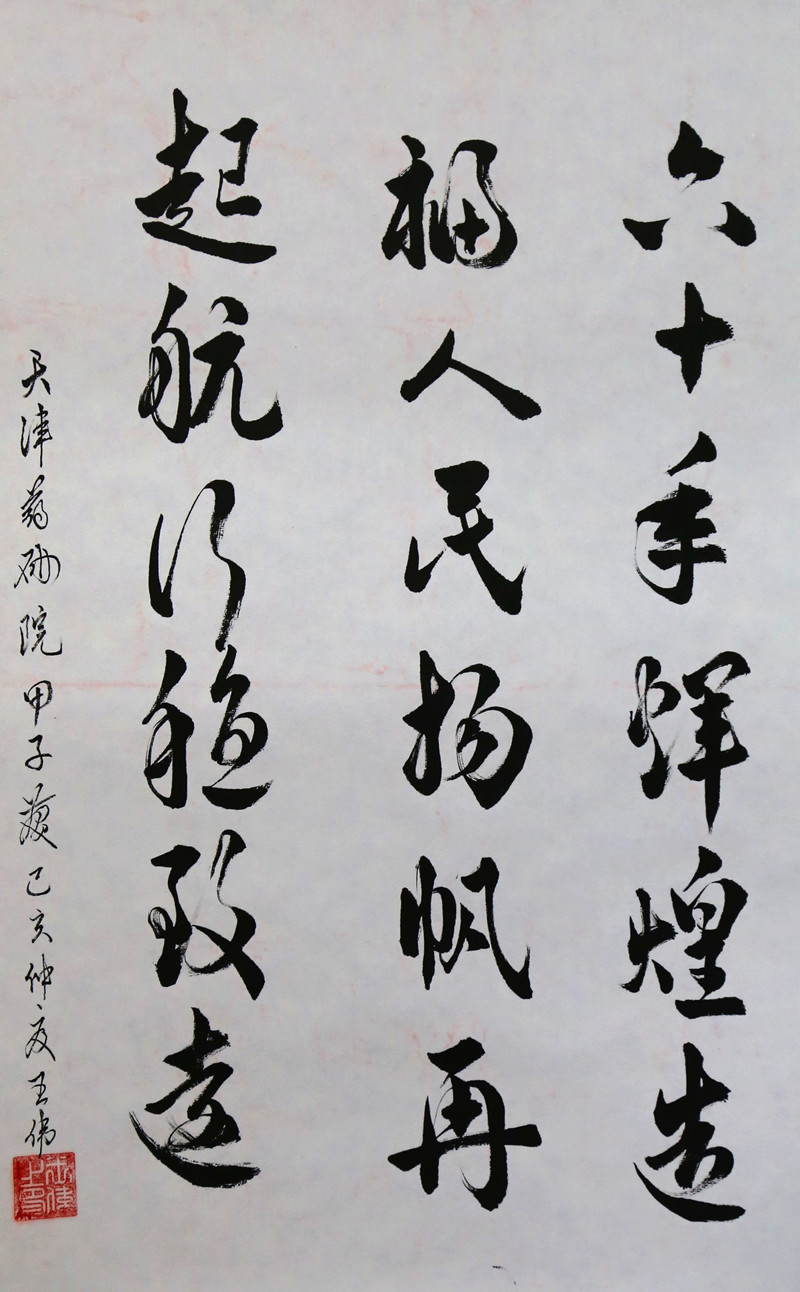 六十年辉煌造
福人民扬帆再
起航行稳致远
天津药研院甲子庆己亥仲夏王伟